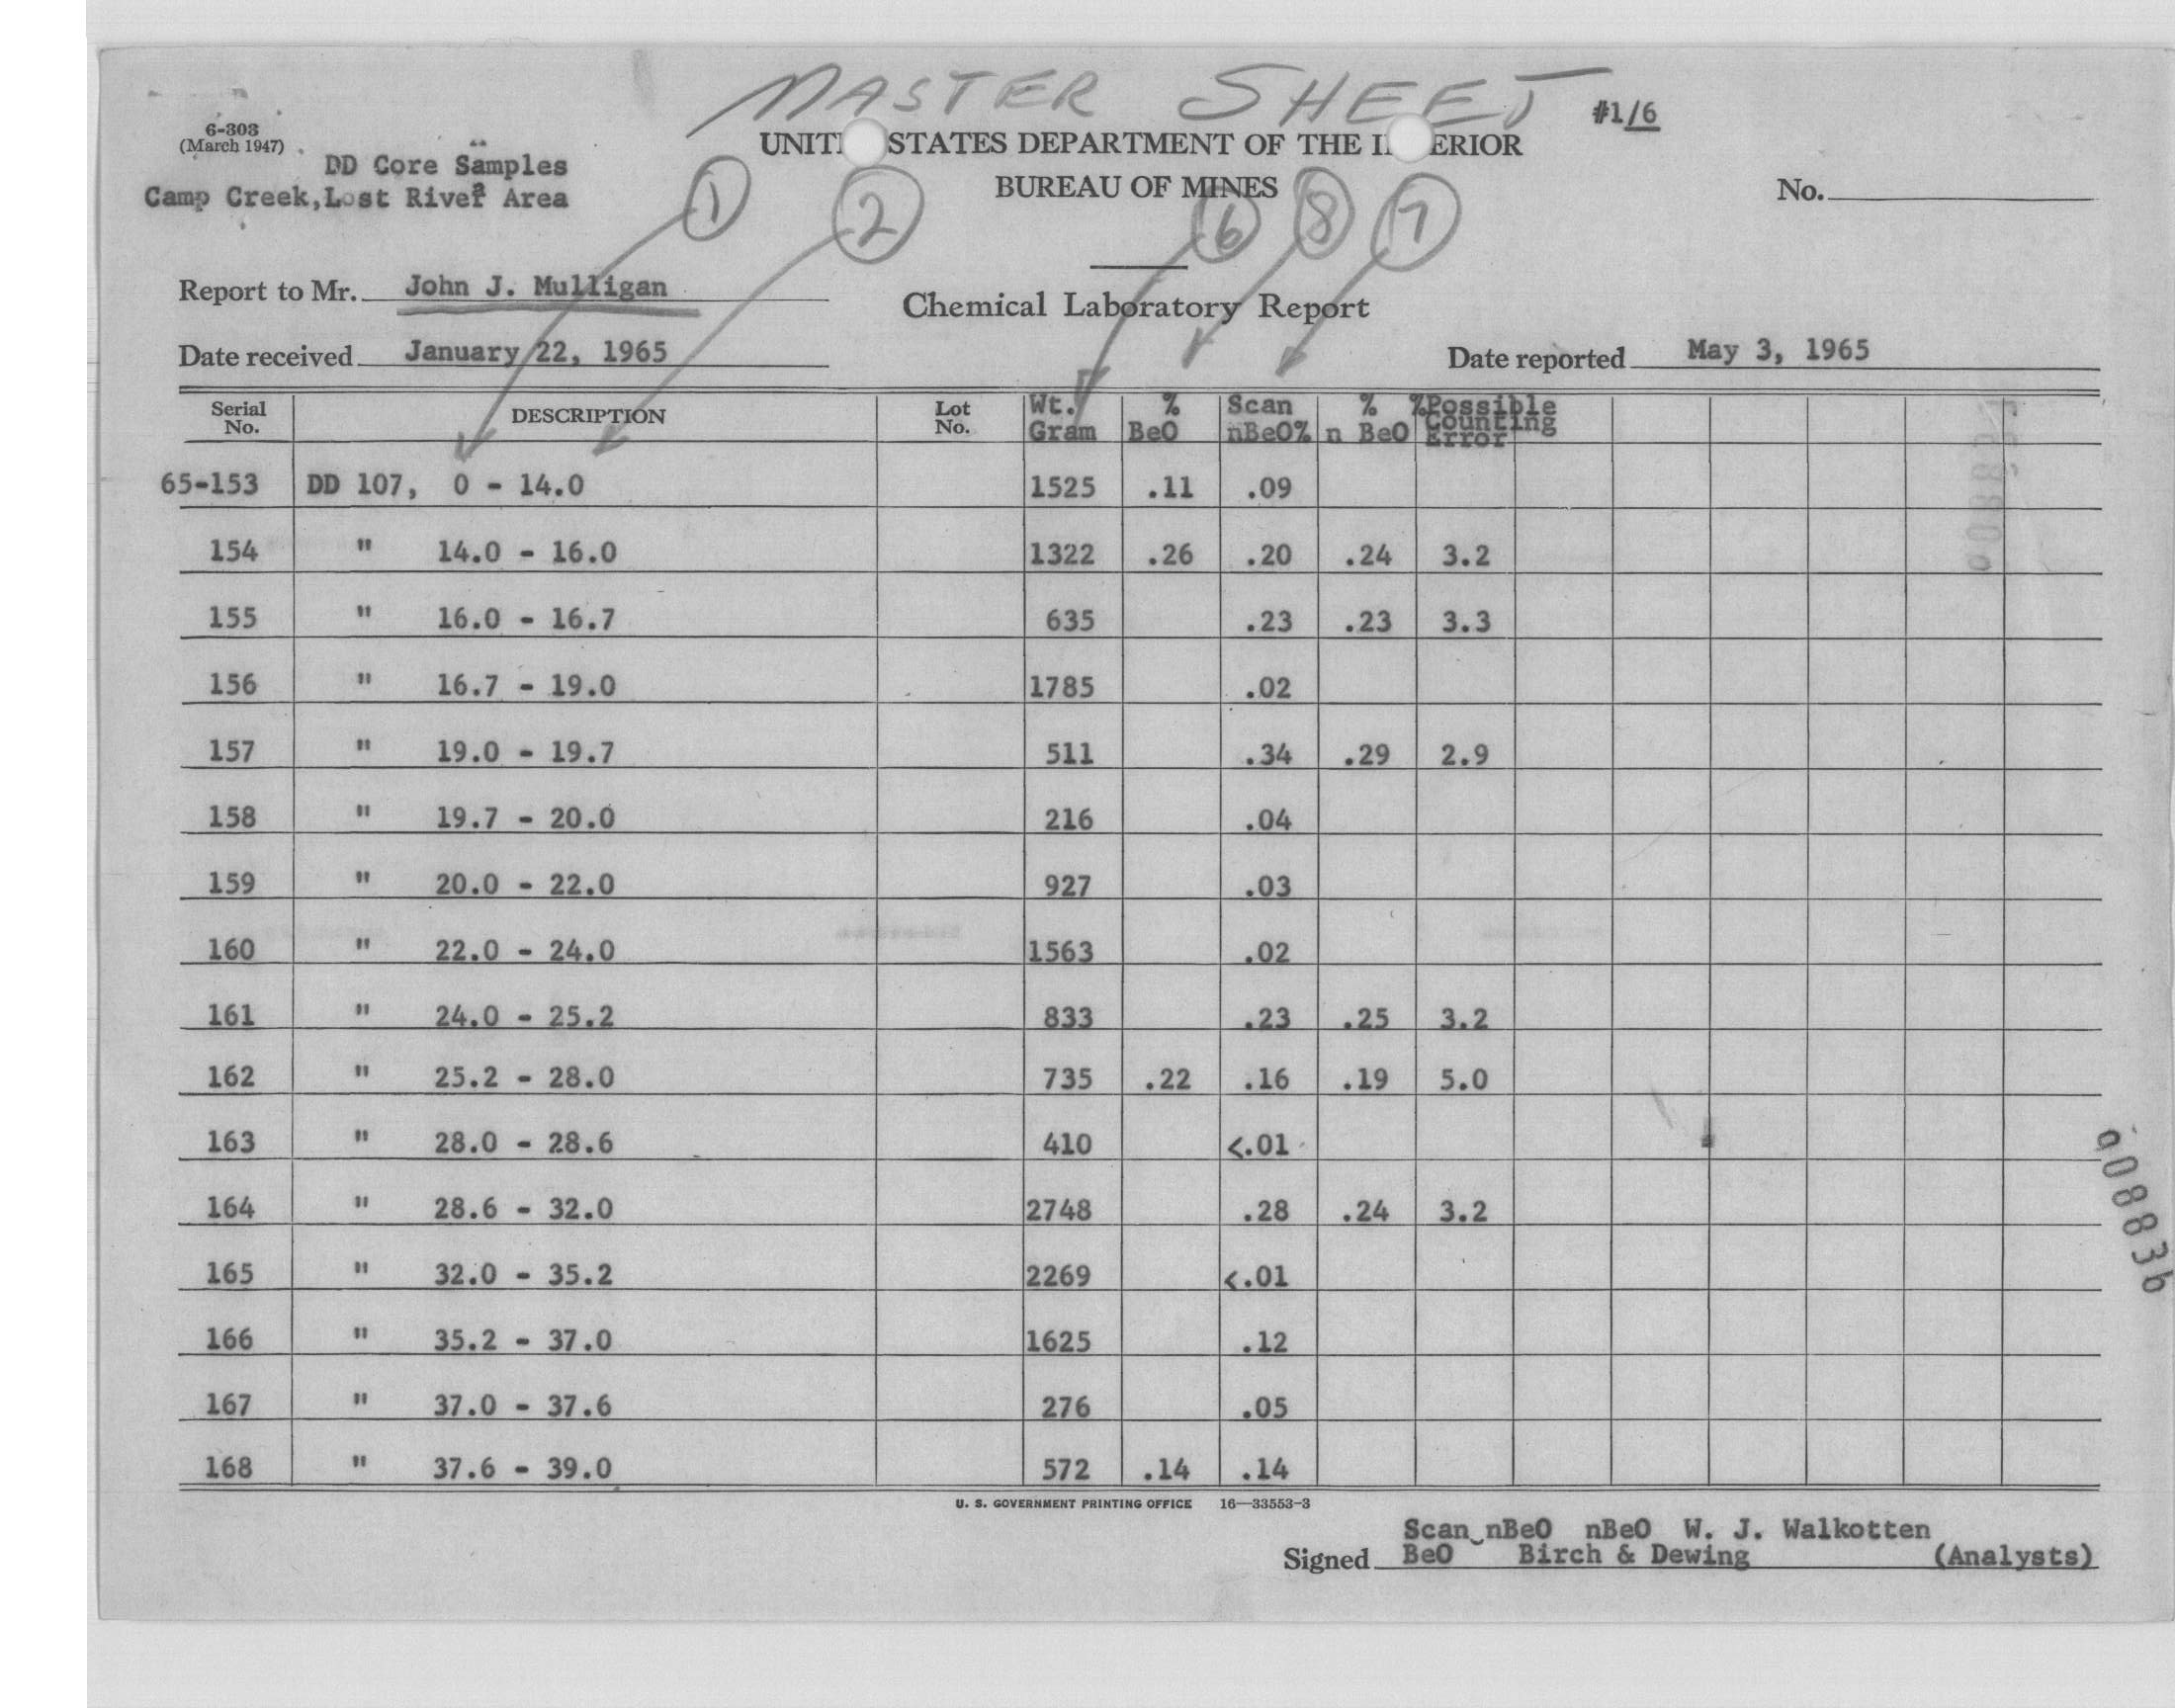 MASTER SHEET
#1/6
6-303
(March 1947)
DD Core Samples
Camp Creek, Lost River Area
UNITED STATES DEPARTMENT OF THE INTERIOR
BUREAU OF MINES
No.
1 2 6 8 7
Report to Mr. John J. Mulligan
Chemical Laboratory Report
Date received January 22, 1965
Date reported May 3, 1965
Serial No. DESCRIPTION Lot No. Wt. Gram % BeO Scan nBeO% % n BeO %Possible Counting Error
65-153 DD 107, 0 - 14.0 1525 .11 .09
154 " 14.0 - 16.0 1322 .26 .20 .24 3.2
155 " 16.0 - 16.7 635 .23 .23 3.3
156 " 16.7 - 19.0 1785 .02
157 " 19.0 - 19.7 511 .34 .29 2.9
158 " 19.7 - 20.0 216 .04
159 " 20.0 - 22.0 927 .03
160 " 22.0 - 24.0 1563 .02
161 " 24.0 - 25.2 833 .23 .25 3.2
162 " 25.2 - 28.0 735 .22 .16 .19 5.0
163 " 28.0 - 28.6 410 <.01
164 " 28.6 - 32.0 2748 .28 .24 3.2
165 " 32.0 - 35.2 2269 <.01
166 " 35.2 - 37.0 1625 .12
167 " 37.0 - 37.6 276 .05
168 " 37.6 - 39.0 572 .14 .14
U. S. GOVERNMENT PRINTING OFFICE 16—33553-3
Scan nBeO nBeO W. J. Walkotten
Signed BeO Birch & Dewing (Analysts)